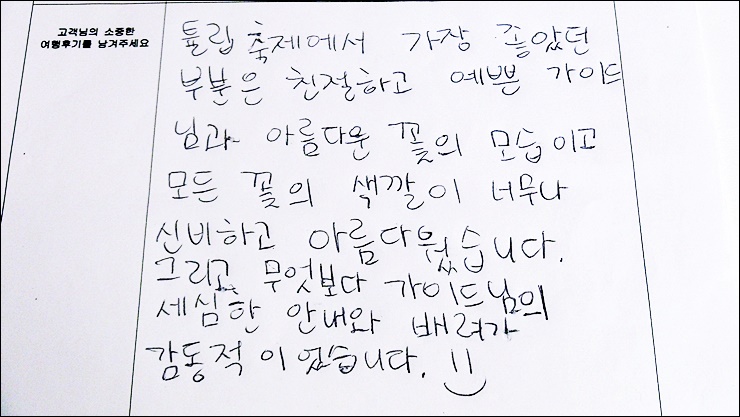 고객님의 소중한
여행후기를 남겨주세요
튤립축제에서 가장 좋았던
부분은 친절하고 예쁜 가이드
님과 아름다운 꽃의 모습이고
모든 꽃의 색깔이 너무나
신비하고 아름다웠습니다.
그리고 무엇보다 가이드님의
세심한 안내와 배려가
감동적이었습니다.